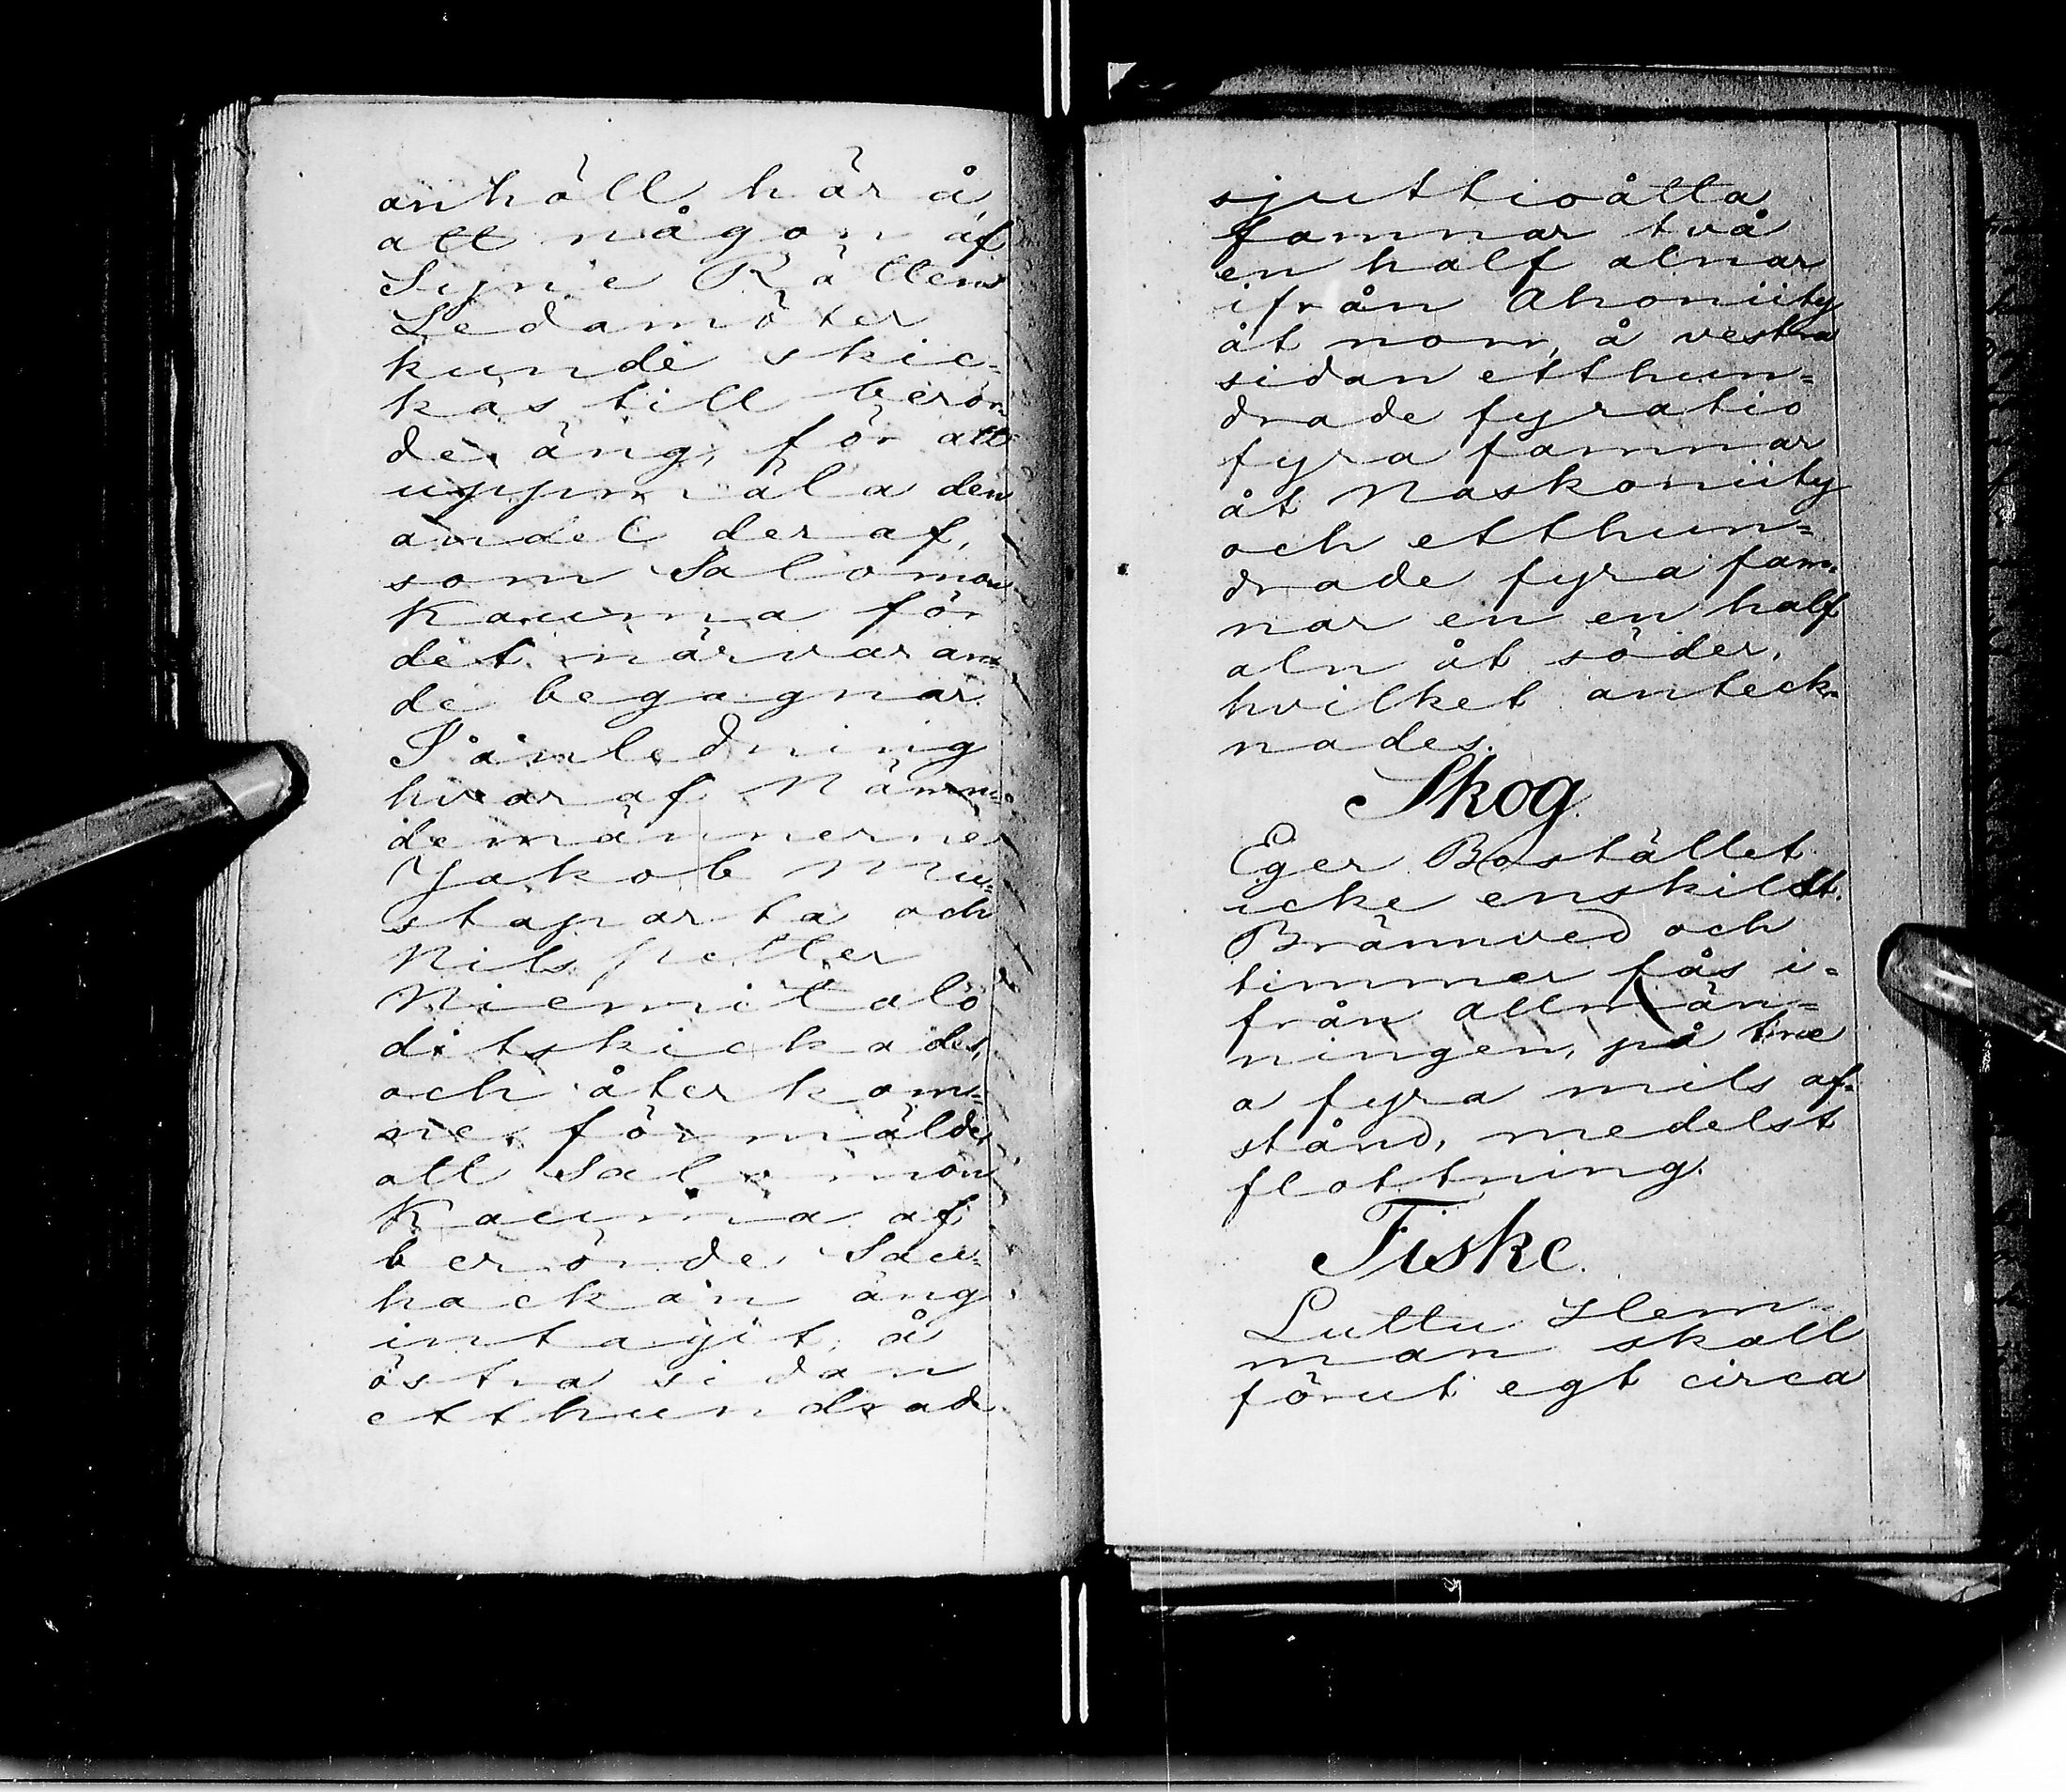 anhöll här å,
att någon af
Syne Rättens
Ledamöter
kunde skic=
kas till berör=
de äng, för att
uppmäla den
andel der af,
som Salomon
Kauma för
det närvaran=
de begagnar.
I anledning
hvar af Nämn=
demännerne
Jakob Mu=
staparta och
Nils petter
Niemitalo
ditskickades,
och återkom=
ne, förmälde,
att Salomon
Kauma af
berörde Sau=
hackan äng
intagit, å
östra sidan
etthundrad
sjuttioåtta
famnar två
en half alnar
ifrån Ahoniity
åt norr, å vestra
sidan etthun=
drade fyratio
fyra famnar
åt Naskoniity
och etthun=
drade fyra fam=
nar en en half
aln åt söder,
hvilket anteck=
nades.
Skog.
Eger Bostället
icke enskildt.
Brännved och
timmer fås i=
från allmän=
ningen, på tree
a fyra mils af=
stånd, medelst
flottning.
Fiske.
Luttu Hem=
man skall
förut egt circa